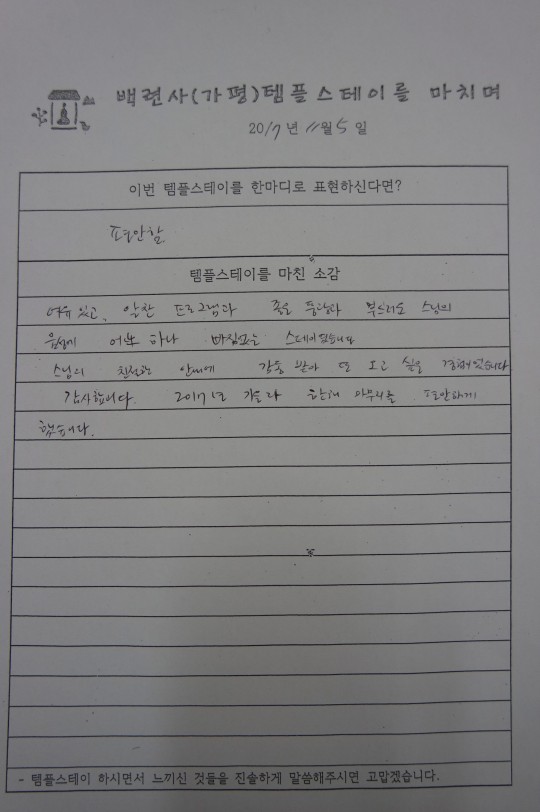 백련사(가평)템플스테이를 마치며
2017년 11월 5일
이번 템플스테이를 한마디로 표현하신다면?
편안함
템플스테이를 마친 소감
여유 있고, 알찬 프로그램과 좋은 풍경과 부드러운 스님의
음성에 어느 하나 빠짐없는 스테이였습니다
스님의 친절한 안내에 감동 받아 또 오고 싶은 경험이었습니다
감사합니다. 2017년 가을과 한해 마무리를 편안하게
했습니다.
- 템플스테이 하시면서 느끼신 것들을 진솔하게 말씀해주시면 고맙겠습니다.